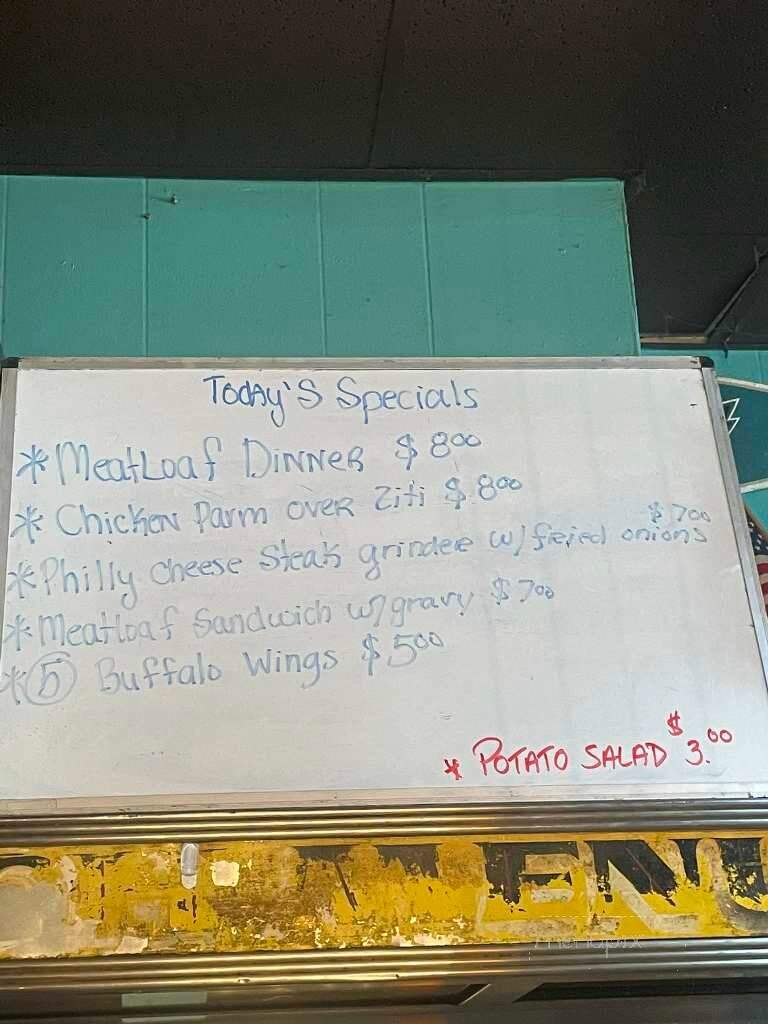 Today's Specials
* Meatloaf Dinner $8⁰⁰
* Chicken Parm over Ziti $8⁰⁰
* Philly Cheese Steak grinder w/ fried onions $7⁰⁰
* Meatloaf Sandwich w/ gravy $7⁰⁰
* 5 Buffalo Wings $5⁰⁰
* POTATO SALAD $3.⁰⁰